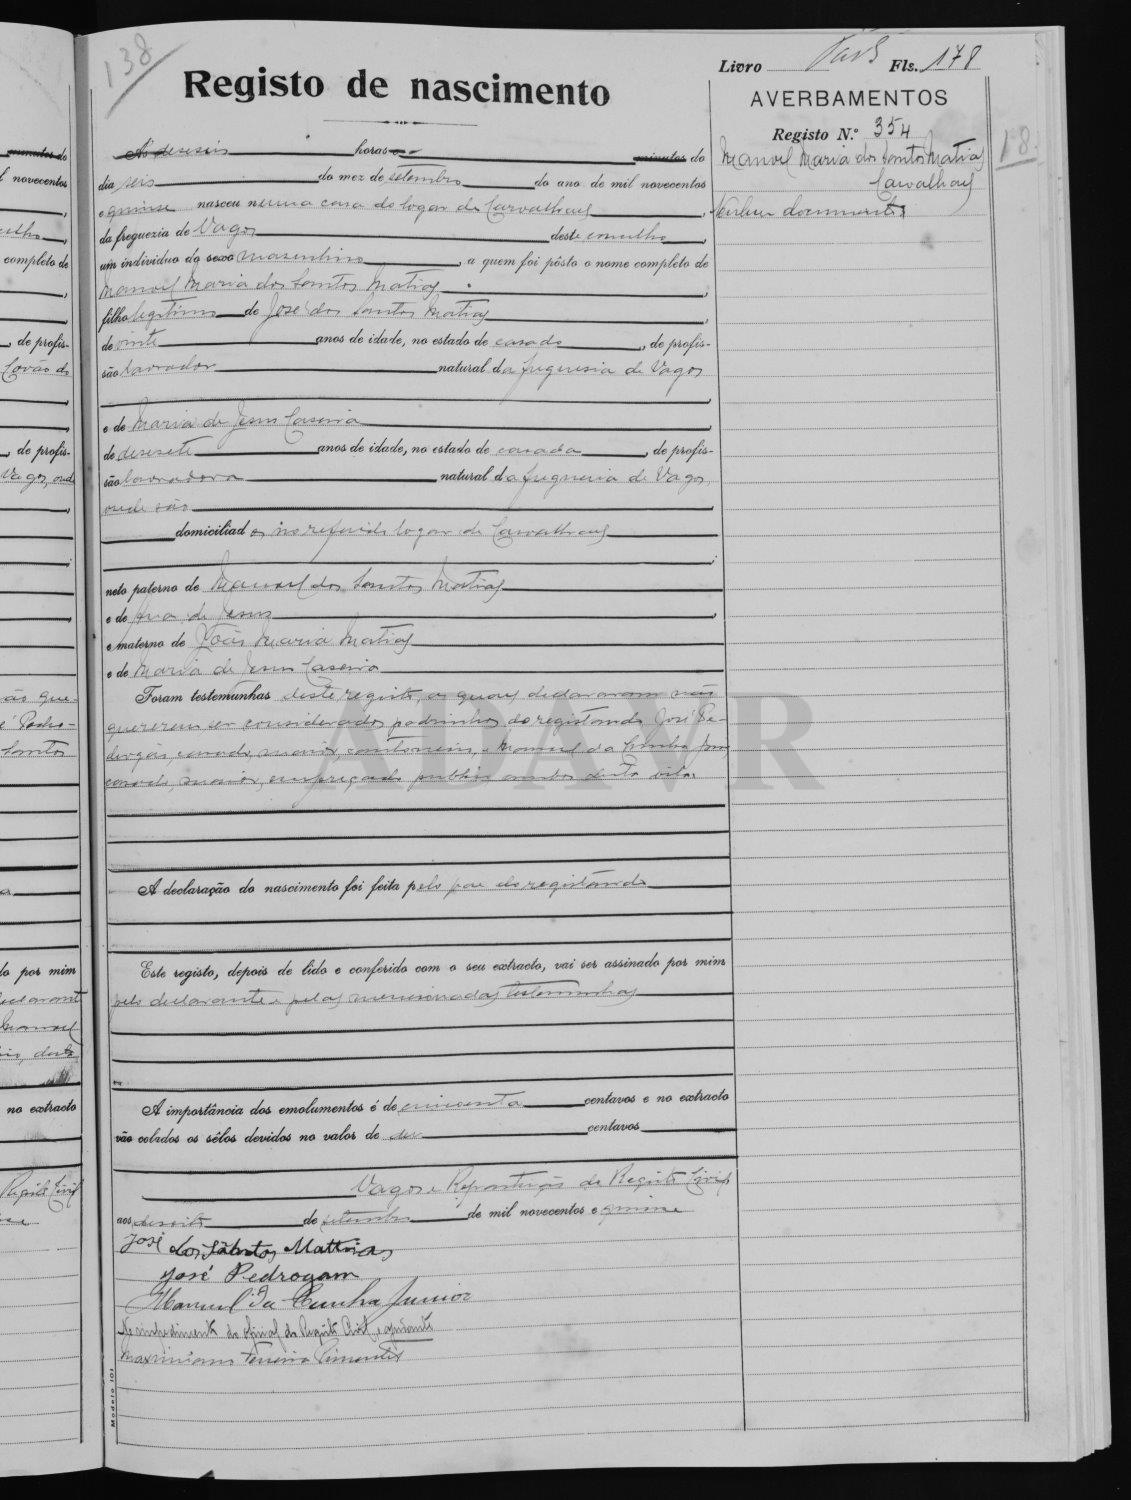 138
Registo de nascimento
Livro Fls. 178
AVERBAMENTOS
Registo N.º 354
Manoel Maria dos Santos Matias
Carvalhaes
Nenhum documento
18
Ás deseseis horas e minutos do
dia seis do mez de setembro do ano de mil novecentos
e quinse nasceu numa casa do logar de Carvalhaes,
da freguezia de Vagos deste concelho,
um individuo do sexo masculino, a quem foi pôsto o nome completo de
Manoel Maria dos Santos Matias,
filho legitimo de José dos Santos Matias,
de vinte anos de idade, no estado de casado, de profis-
são lavrador natural da freguesia de Vagos
e de Maria de Jesus Caseira
de desesete anos de idade, no estado de casada, de profis-
são lavradora natural da freguesia de Vagos
onde são
domiciliados no referido logar de Carvalhaes
neto paterno de Manoel dos Santos Matias
e de Ana de Jesus,
e materno de João Maria Matias
e de Maria de Jesus Caseira
Foram testemunhas deste registo, as quaes declararam não
quererem ser considerados padrinhos do registando José Pe-
drogão, casado, maior, cantoneiro, e Manuel da Cunha Junior,
casado, maior, empregado publico ambos desta vila.
ADAVR
A declaração do nascimento foi feita pelo pae do registando
Este registo, depois de lido e conferido com o seu extracto, vai ser assinado por mim
pelo declarante e pelas mencionadas testemunhas
A importância dos emolumentos é de cincoenta centavos e no extracto
vão colados os sêlos devidos no valor de dez centavos
Vagos e Repartição do Registo Civil
aos desoito de setembro de mil novecentos e quinse
José dos Santos Mattias
José Pedrogam
Manuel da Cunha Junior
No impedimento do oficial do Registo Civil, o ajudante
Maximiano Ferreira Pimentel
Modelo 101